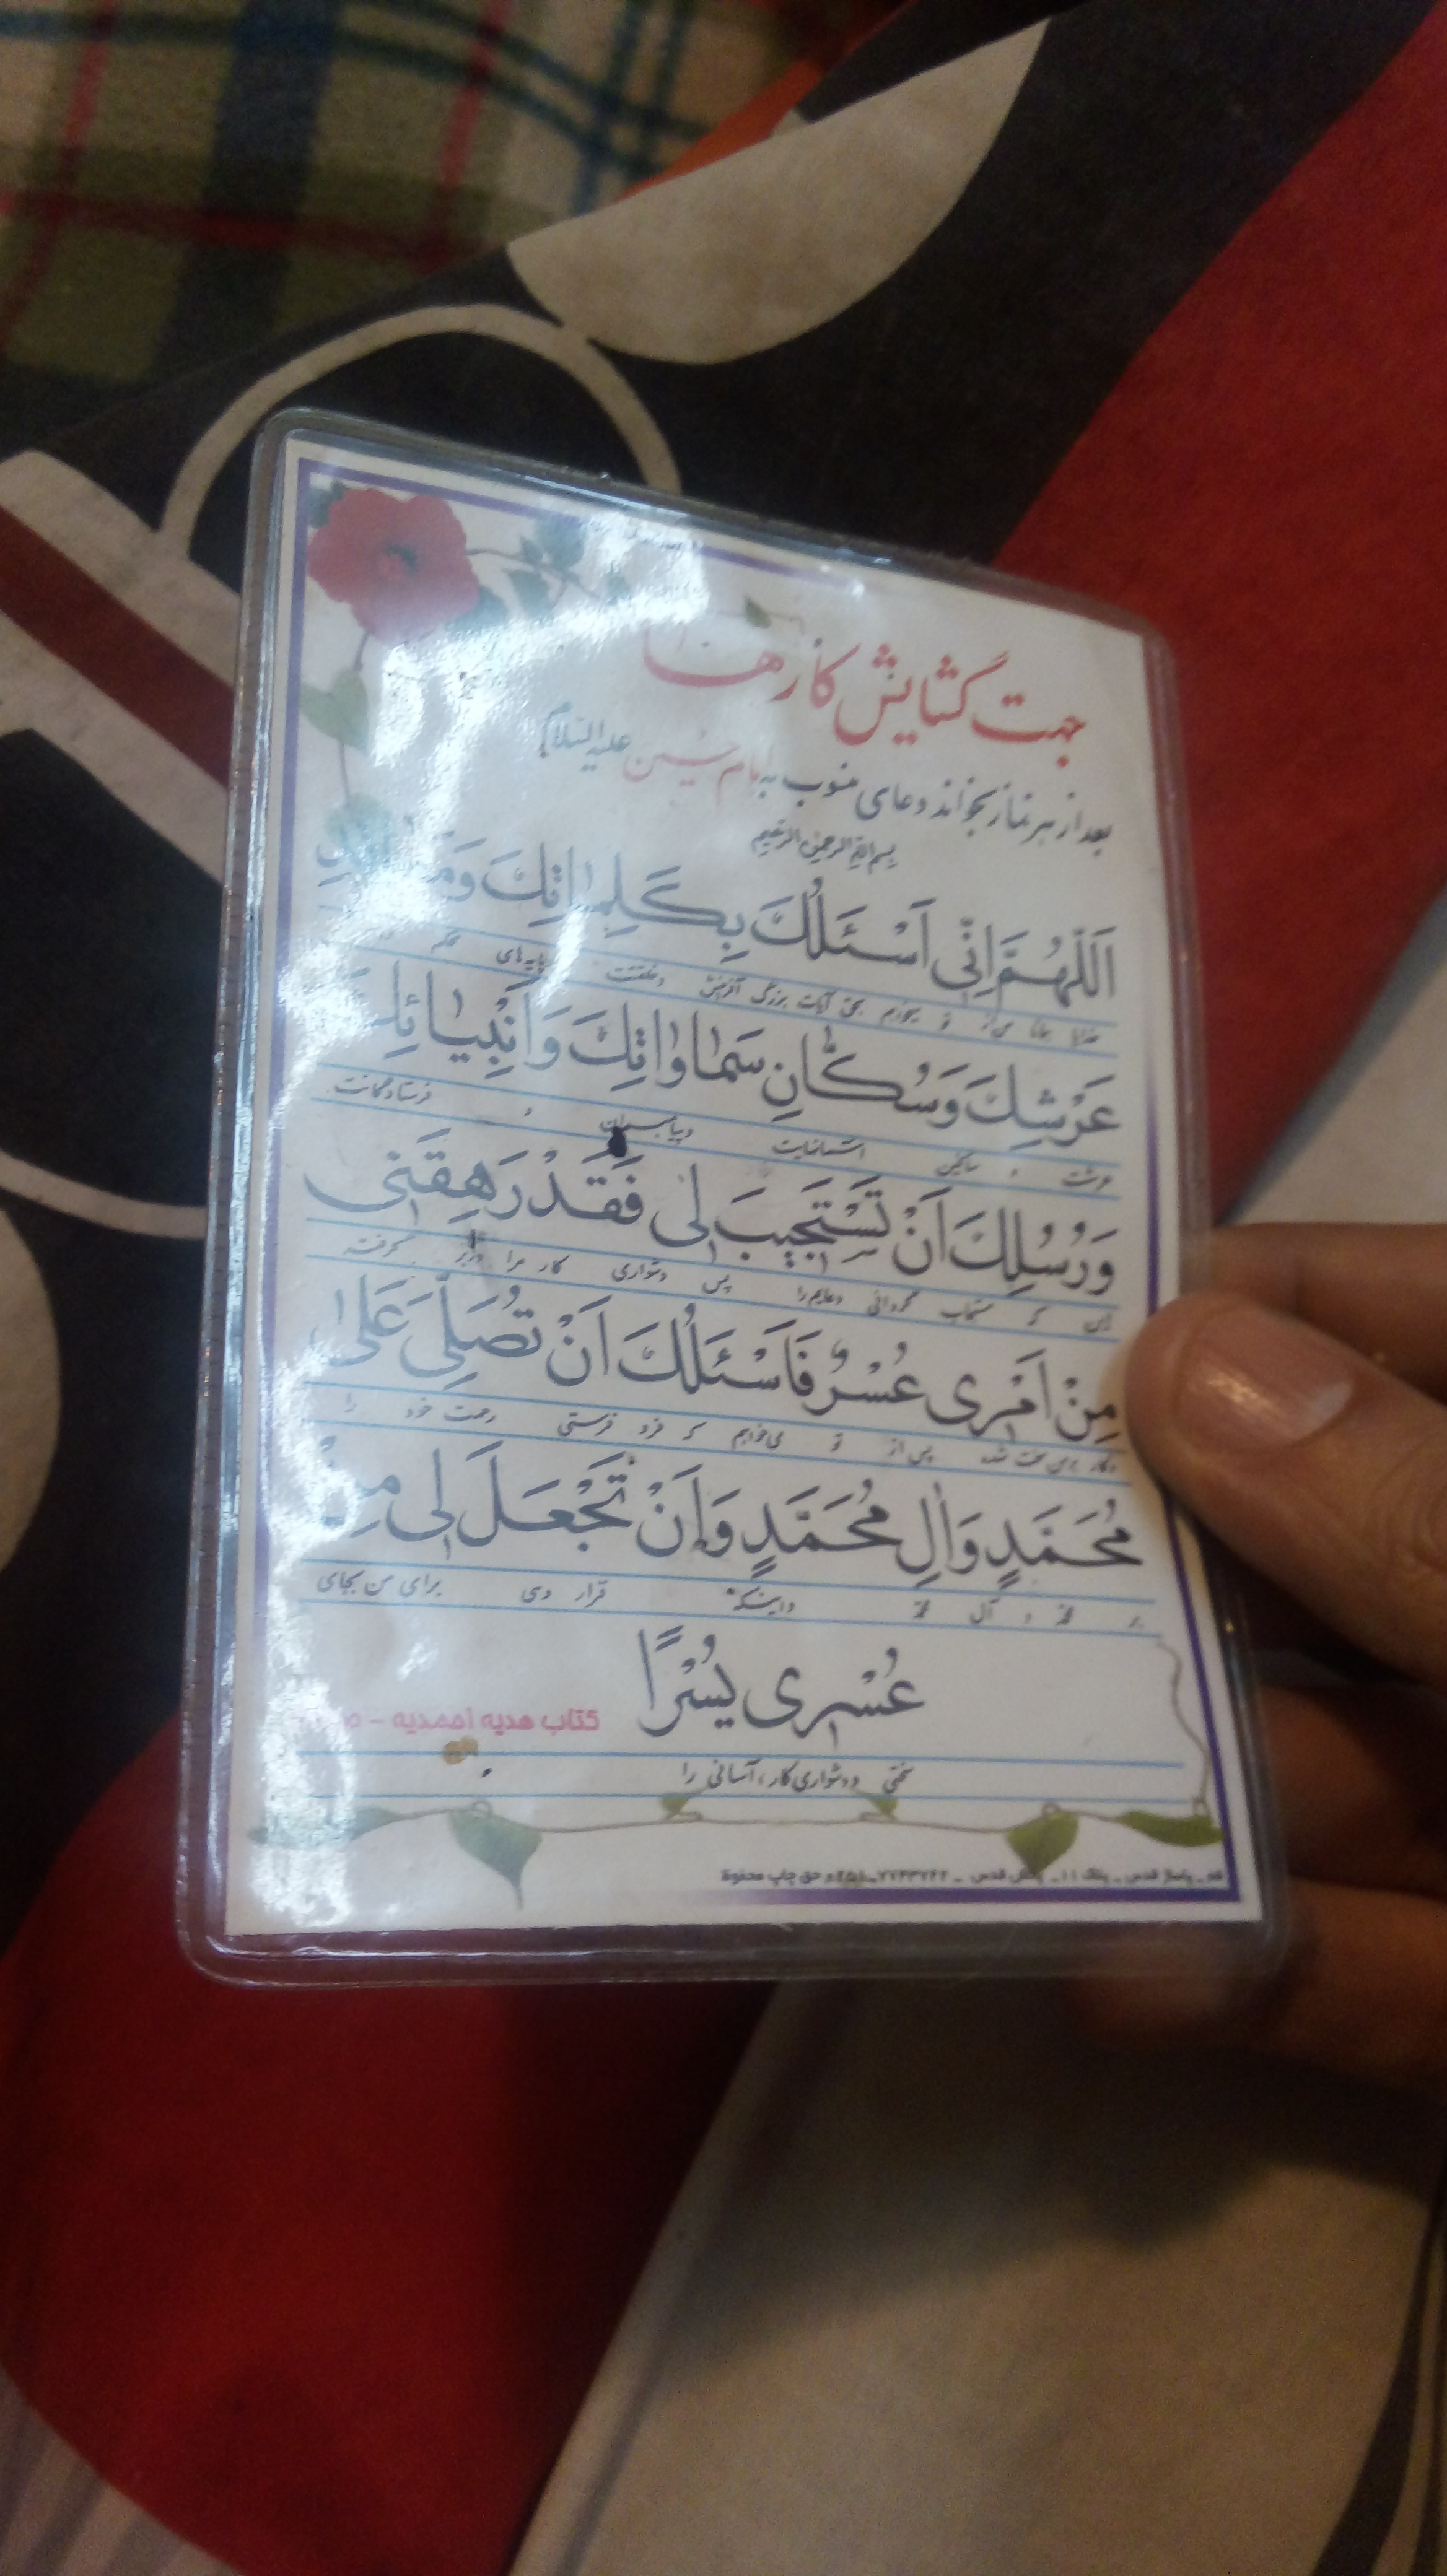 جهت گشایش کارها
بعد از هر نماز بخواند دعای منسوب به امام حسین علیه السلام
بسم الله الرحمن الرحیم
اَللّٰهُمَّ اِنّی اَسْئَلُكَ بِكَلِماتِكَ
خدایا همانا من از تو بحق آیات بزرگ آفرینش و خلقتت
عَرْشِكَ وَسُكّانِ سَماواتِكَ وَاَنْبِیائِكَ
عرشت و ساکنین آسمانهایت و پیامبران و فرستادگانت
وَرُسُلِكَ اَنْ تَسْتَجیبَ لی فَقَدْ رَهِقَنی
که مستجاب گردانی دعایم را پس دشواری کار مرا گرفته
مِنْ اَمْری عُسْرٌ فَاَسْئَلُكَ اَنْ تُصَلِّیَ عَلیٰ
پس از تو می‌خواهم که فرو فرستی رحمت خود را
مُحَمَّدٍ وَالِ مُحَمَّدٍ وَاَنْ تَجْعَلَ لی مِنْ
بر محمد و آل محمد و اینکه قرار دهی برای من بجای
عُسْری یُسْرًا
کتاب هدیه احمدیه -
سختی و دشواری کار، آسانی را
قم - پاساژ قدس - پلاک ۱۱ - پخش قدس - حق چاپ محفوظ